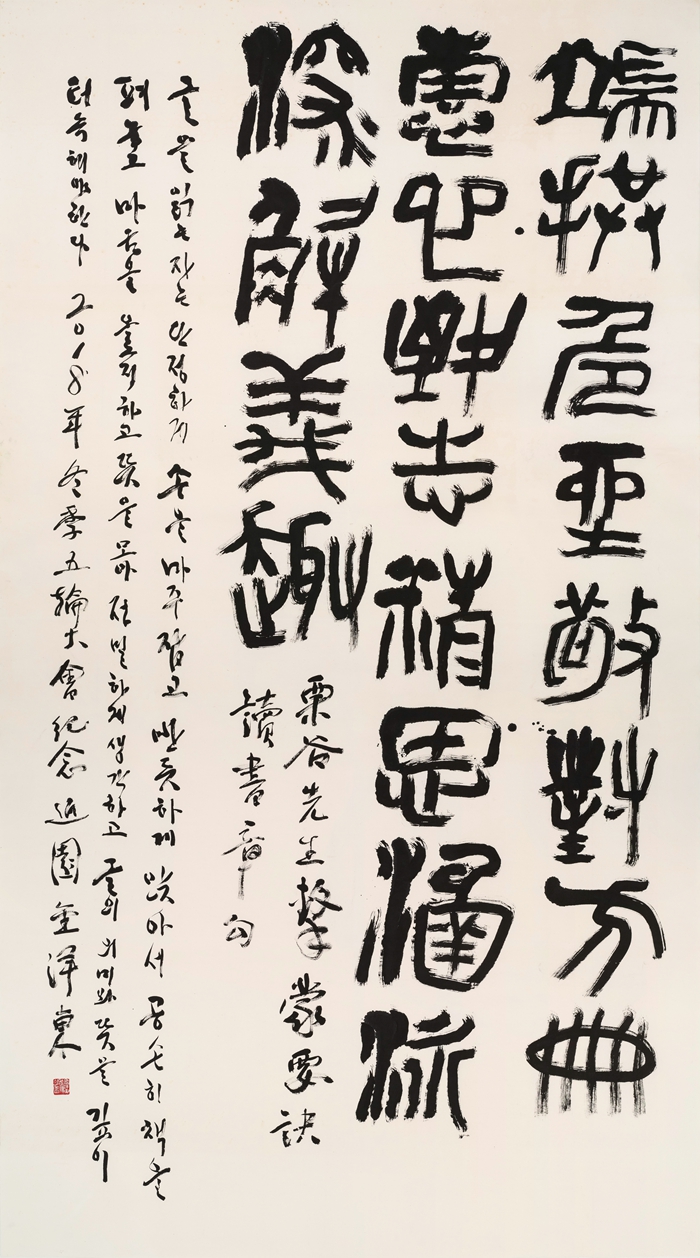 端拱危坐敬對方冊
專心致志精思涵泳
深解義趣
栗谷先生擊蒙要訣
讀書章句
글을 읽는 자는 단정하게 손을 마주잡고 반듯하게 앉아서 공손히 책을
펴 놓고 마음을 오직하고 뜻을 모아 정밀하게 생각하고 글의 의미와 뜻을 깊이
터득해야한다 2018年 冬季五輪大會紀念 近園 金洋東